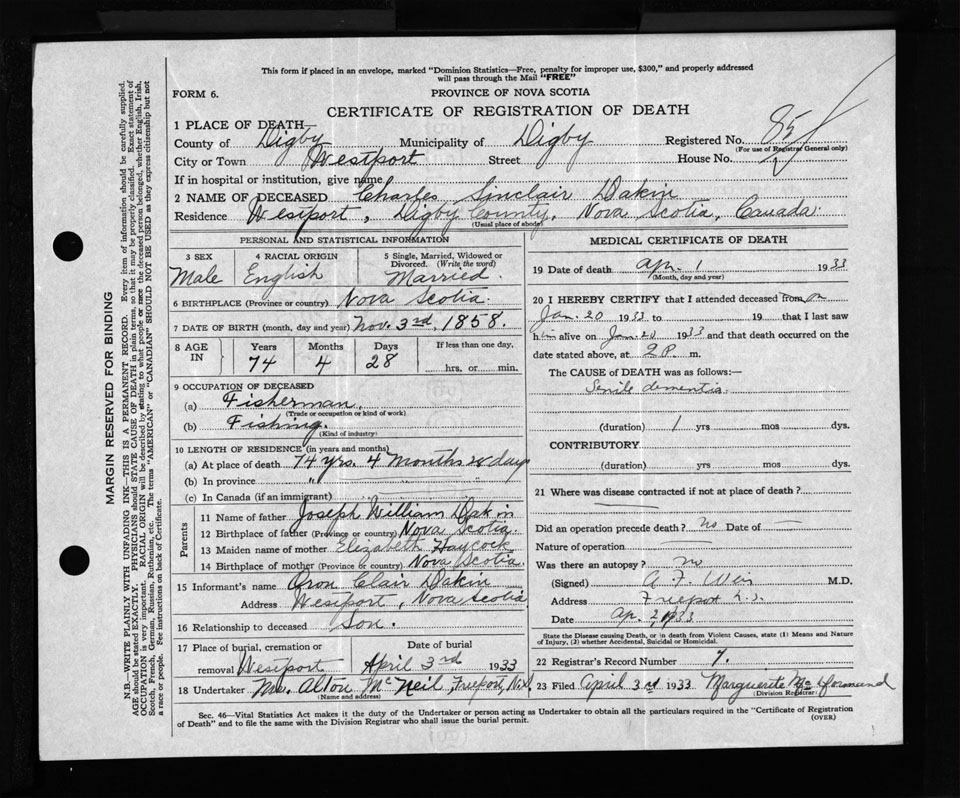 This form if placed in an envelope, marked "Dominion Statistics—Free, penalty for improper use, $300," and properly addressed
will pass through the Mail "FREE"
FORM 6.
PROVINCE OF NOVA SCOTIA
CERTIFICATE OF REGISTRATION OF DEATH
1 PLACE OF DEATH—
County of Digby Municipality of Digby Registered No.
(For use of Registrar General only)
City or Town Westport Street House No.
If in hospital or institution, give name
2 NAME OF DECEASED Charles Sinclair Dakin
Residence Westport, Digby County, Nova Scotia, Canada.
(Usual place of abode)
PERSONAL AND STATISTICAL INFORMATION
3 SEX
Male
4 RACIAL ORIGIN
English
5 Single, Married, Widowed or
Divorced. (Write the word)
Married.
6 BIRTHPLACE (Province or country) Nova Scotia.
7 DATE OF BIRTH (month, day and year) Nov. 3rd, 1858.
8 AGE IN
Years
74
Months
4
Days
28
If less than one day,
hrs. or min.
9 OCCUPATION OF DECEASED
(a) Fisherman.
(Trade or occupation or kind of work)
(b) Fishing.
(Kind of industry)
10 LENGTH OF RESIDENCE (in years and months)
(a) At place of death 74 yrs. 4 months 28 days
(b) In province " "
(c) In Canada (if an immigrant)
Parents
11 Name of father Joseph William Dakin
12 Birthplace of father (Province or country) Nova Scotia.
13 Maiden name of mother Elizabeth Haycock
14 Birthplace of mother (Province or country) Nova Scotia.
15 Informant's name Oron Clair Dakin
Address Westport, Nova Scotia
16 Relationship to deceased Son.
17 Place of burial, cremation or Date of burial
removal Westport April 3rd 1933
18 Undertaker Mr. Alton McNeil, Freeport, N.S.
(Name and address)
MEDICAL CERTIFICATE OF DEATH
19 Date of death Ap. 1 1933
(Month, day and year)
20 I HEREBY CERTIFY that I attended deceased from on
Jan. 20 1933 to 19 that I last saw
him alive on Jan. 20 1933 and that death occurred on the
date stated above, at 9 P. m.
The CAUSE of DEATH was as follows:—
Senile dementia.
(duration) 1 yrs mos dys.
CONTRIBUTORY
(duration) yrs mos dys.
21 Where was disease contracted if not at place of death?
Did an operation precede death? no Date of —
Nature of operation —
Was there an autopsy? no
(Signed) A. F. Weir M.D.
Address Freeport N.S.
Date Ap. 2 1933
State the Disease causing Death, or in death from Violent Causes, state (1) Means and Nature
of Injury, (2) whether Accidental, Suicidal or Homicidal.
22 Registrar's Record Number 7.
23 Filed April 3rd 1933 Marguerite McDormand
Division Registrar
Sec. 46—Vital Statistics Act makes it the duty of the Undertaker or person acting as Undertaker to obtain all the particulars required in the "Certificate of Registration
of Death" and to file the same with the Division Registrar who shall issue the burial permit.
(OVER)
MARGIN RESERVED FOR BINDING
N.B.—WRITE PLAINLY WITH UNFADING INK—THIS IS A PERMANENT RECORD. Every item of information should be carefully supplied.
AGE should be stated EXACTLY. PHYSICIANS should STATE CAUSE OF DEATH in plain terms, so that it may be properly classified. Exact statement of
OCCUPATION is very important. RACIAL ORIGIN will be described by stating to what people or race the deceased person belonged, whether English, Irish,
Scotch, French, German, Russian, Ruthenian, etc. The terms "AMERICAN" or "CANADIAN" SHOULD NOT BE USED as they express citizenship but not
a race or people. See instructions on back of Certificate.